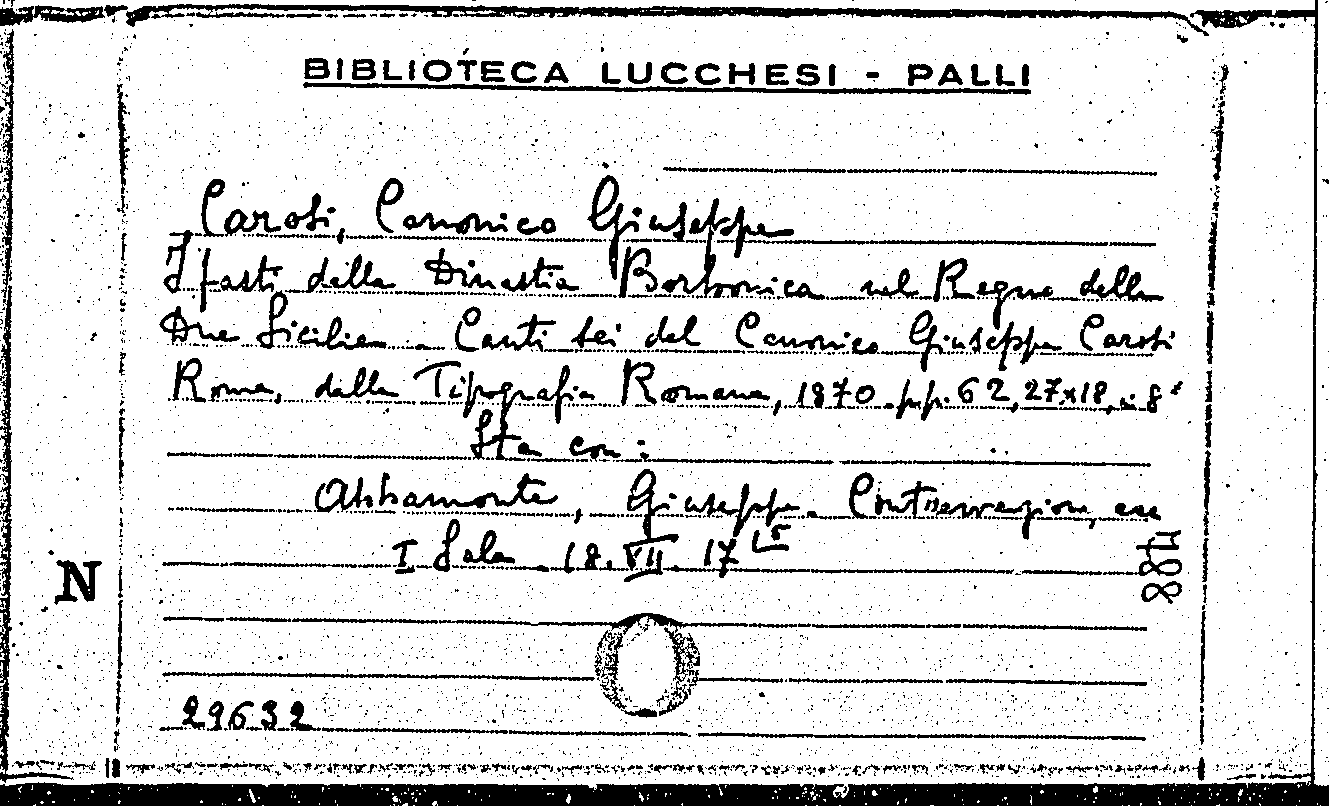 BIBLIOTECA LUCCHESI - PALLI
Carosi, Canonico Giuseppe
I fasti della Dinastia Borbonica nel Regno delle
Due Sicilie. Canti sei del Canonico Giuseppe Carosi
Roma, dalla Tipografia Romana, 1870. pp. 62, 27x18, in 8°
Sta con:
Abbamonte, Giuseppe. Conservazione, ecc
I Sala. 18. VII. 17
N
1488
29632